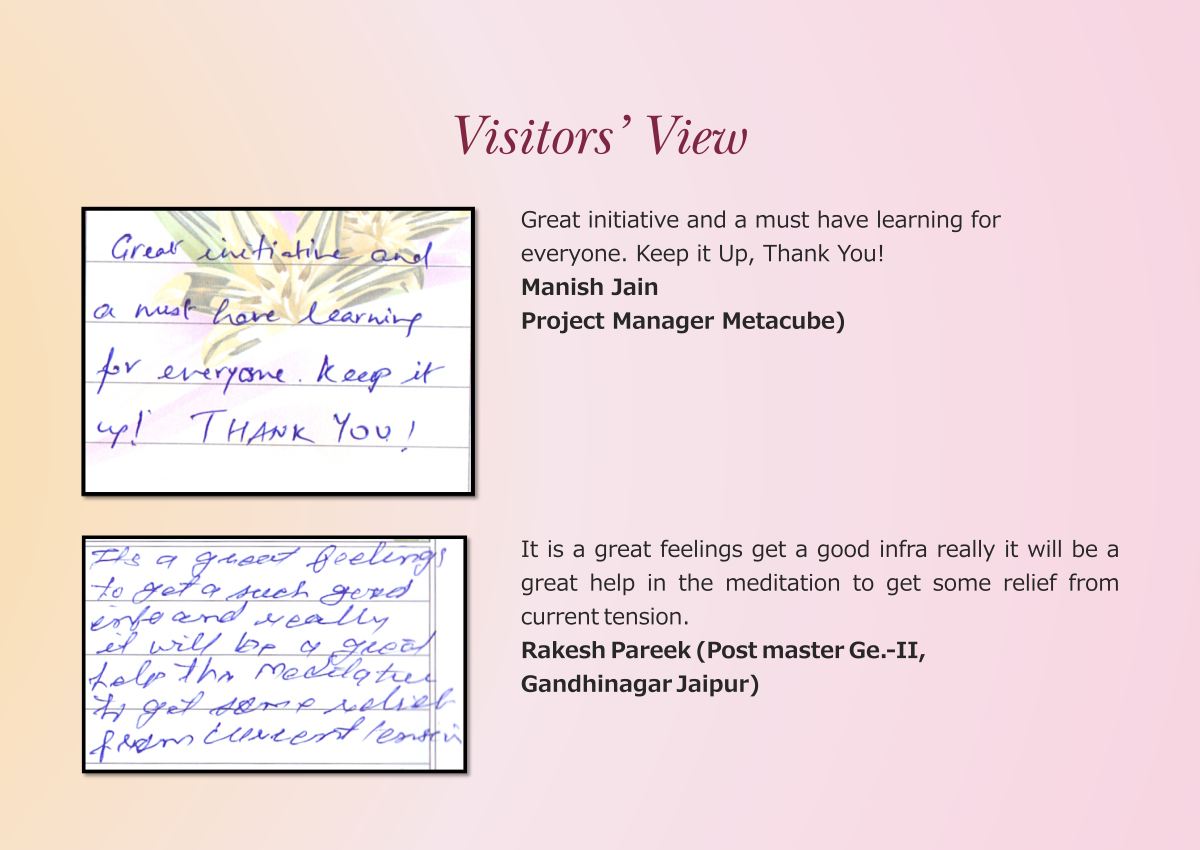 Visitors’ View
Great initiative and
a must have learning
for everyone. Keep it
up! THANK YOU!
Great initiative and a must have learning for
everyone. Keep it Up, Thank You!
Manish Jain
Project Manager Metacube)
Its a great feelings
to get a such good
info and really
it will be a great
help the Meditation
to get some relief
from current tension
It is a great feelings get a good infra really it will be a
great help in the meditation to get some relief from
current tension.
Rakesh Pareek (Post master Ge.-II,
Gandhinagar Jaipur)